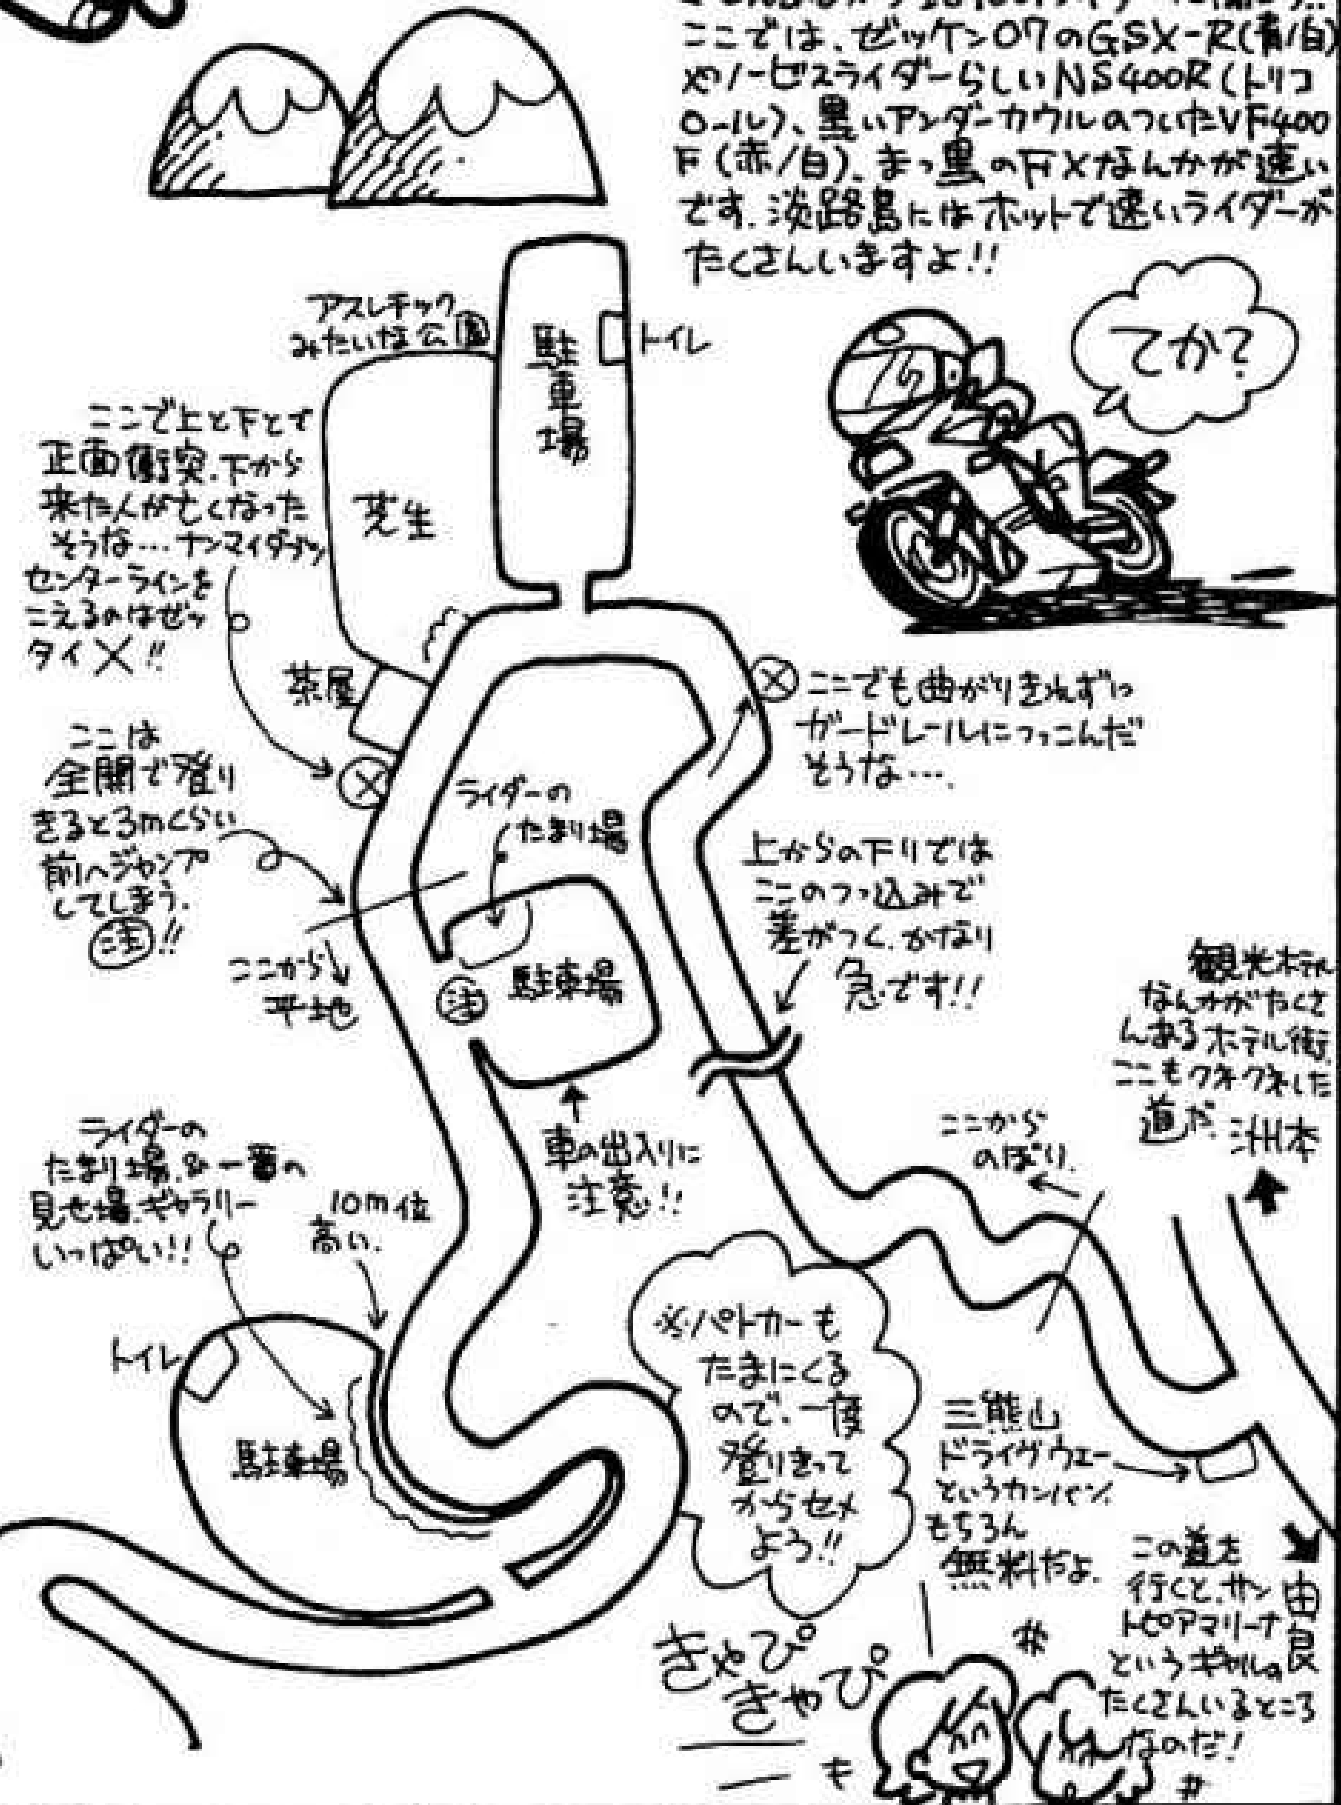 ここでは、ゼッケン07のGSX-R(青/白)
やノービスライダーらしいNS400R(トリコ
ロール)、黒いアンダーカウルのついたVF400
F(赤/白)、まっ黒のFXなんかが速い
です。淡路島にはホットで速いライダーが
たくさんいますよ!!
てか?
アスレチック
みたいな公園
駐車場
トイレ
ここで上と下とで
正面衝突、下から
来た人が亡くなった
そうな…ナンマイダブッ
センターラインを
こえるのはゼッ
タイ×!!
芝生
茶屋
ここは
全開で登り
きると3mくらい
前へジャンプ
してしまう。
注!!
ここから
平地
ライダーの
たまり場
注
駐車場
車の出入りに
注意!!
ここでも曲がりきれずに
ガードレールにつっこんだ
そうな…。
上からの下りでは
ここのつっ込みで
差がつく、かなり
急です!!
観光ホテル
なんかがたくさ
んあるホテル街、
ここもクネクネした
道だ。
洲本
ここから
のぼり。
ライダーの
たまり場&一番の
見せ場、ギャラリー
いっぱい!!
10m位
高い。
トイレ
駐車場
※パトカーも
たまにくる
ので、一度
登りきって
からセメ
よう!!
三熊山
ドライヴウェー
というカンバン。
もちろん
無料だよ。
この道を
行くと、サン
トピアマリーナ
というギャルの
たくさんいるところ
なのだ!
由良
きゃぴ
きゃぴ